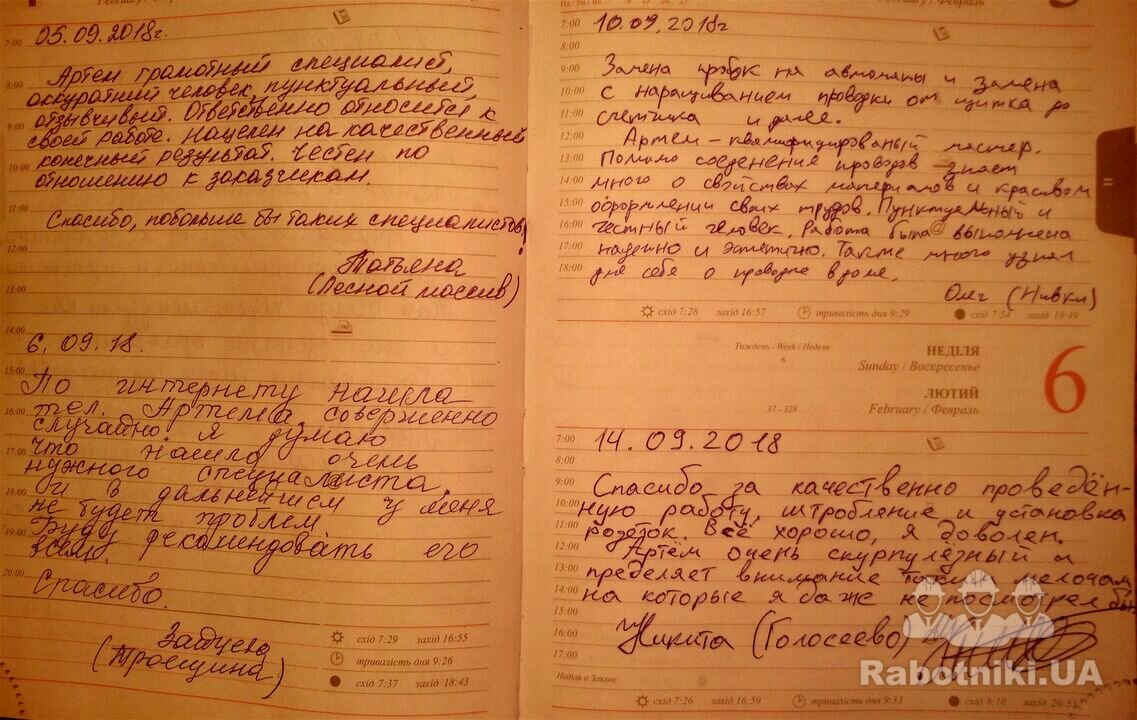 05.09.2018г.
Артем грамотный специалист,
аккуратний человек, пунктуальный,
отзывчивый. Ответственно относится к
своей работе. Нацелен на качественный
конечный результат. Честен по
отношению к заказчикам.
Спасибо, побольше бы таких специалистов!
Татьяна
(Лесной массив)
6.09.18.
По интернету нашла
тел. Артема соверженно
случайно. Я думаю
что нашла очень
нужного специалиста.
И в дальнейшем у меня
не будет проблем.
Буду рекомендовать его
всем.
Спасибо.
(Троещина)
7:00
8:00
9:00
10:00
11:00
12:00
13:00
14:00
15:00
16:00
17:00
18:00
19:00
20:00
схід 7:29 захід 16:55
тривалість дня 9:26
схід 7:37 захід 18:43
February / Февраль
10.09.2018г
Замена пробок на автоматы и замена
с наращиванием проводки от щитка до
счетчика и далее.
Артем - квалифицированый мастер.
Помимо соеденения проводов знает
много о свойствах материалов и красивом
оформлении своих трудов. Пунктуельный и
честный человек. Работа была выполнена
надежно и эстетично. Также много узнал
для себя о проводке в доме.
Олег (Нивки)
7:00
8:00
9:00
10:00
11:00
12:00
13:00
14:00
15:00
16:00
17:00
18:00
схід 7:28 захід 16:57
тривалість дня 9:29
схід 7:54 захід 19:49
Тиждень / Week / Неделя
6
НЕДІЛЯ
Sunday / Воскресенье
6
ЛЮТИЙ
February / Февраль
37 - 328
14.09.2018
Спасибо за качественно проведён-
ную работу, штробление и установка
розеток. Всё хорошо, я доволен.
Артём очень скурпулёзный и
пределяет внимание таким мелочам
на которые я даже не посмотрел бы
Никита (Голосеево)
7:00
8:00
9:00
10:00
11:00
12:00
13:00
14:00
15:00
16:00
17:00
Неділя о Закхея
схід 7:26 захід 16:59
тривалість дня 9:33
схід 8:10 захід 20:55
Rabotniki.UA